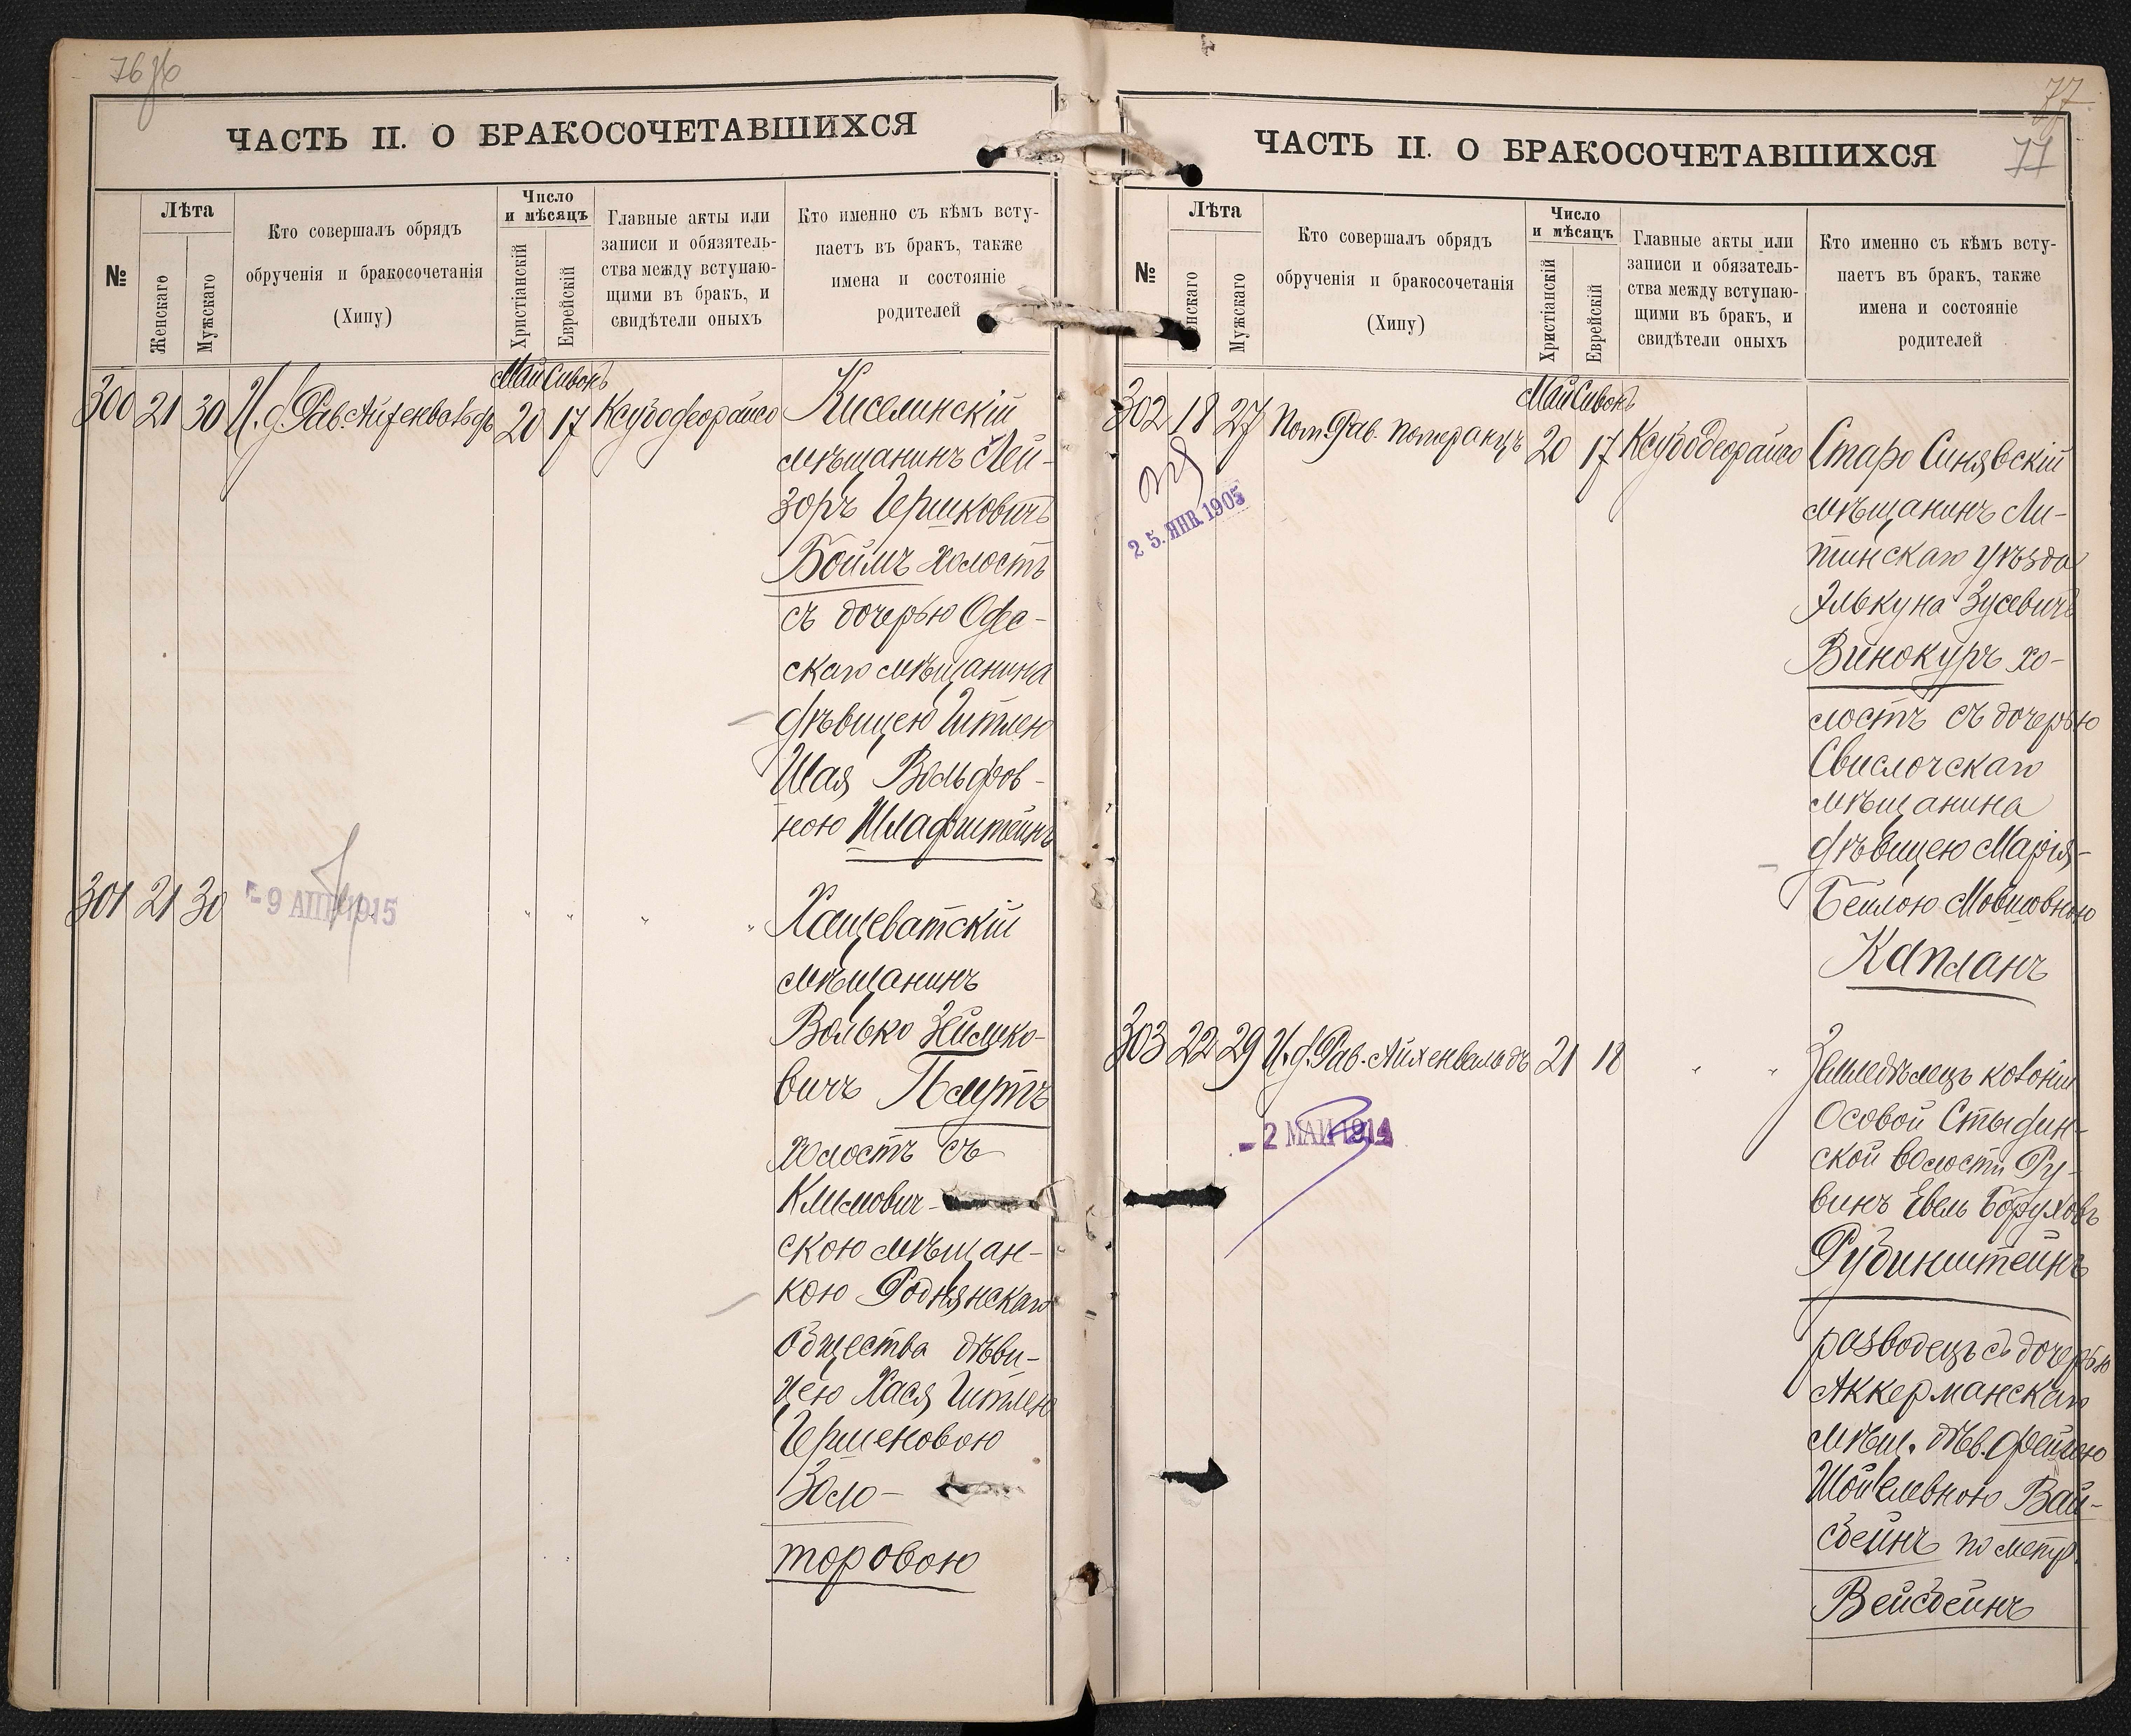 76
ЧАСТЬ II. О БРАКОСОЧЕТАВШИХСЯ
№
Лѣта
Женскаго
Мужскаго
Кто совершалъ обрядъ
обрученія и бракосочетанія
(Хипу)
Число
и мѣсяцъ
Христіанскій
Еврейскій
Главные акты или
записи и обязятель-
ства между вступаю-
щими въ бракъ, и
свидѣтели оныхъ
Кто именно съ кѣмъ всту-
паетъ въ бракъ, также
имена и состояніе
родителей
Май Сивонъ
300 21 30 И. д. Рав. Айхенвальдъ 20 17 Ксубо деорайсо Киселинскій
мѣщанинъ Лей-
зоръ Гершковичъ
Боймъ холостъ
съ дочерью Одес-
скаго мѣщанина
дѣвицею Гитлею
Шая Вольфов-
ною Шлафштейнъ
301 21 30 - 9 АПР 1915 " " " " Хащеватскій
мѣщанинъ
Волько Зейлико-
вичъ Плутъ
холостъ съ
Климович-
скою мѣщан-
кою Роднянскаго
общества дѣви-
цею Хася Гитлею
Гершеновою
Золо-
торовою
77
77
ЧАСТЬ II. О БРАКОСОЧЕТАВШИХСЯ
№
Лѣта
Женскаго
Мужскаго
Кто совершалъ обрядъ
обрученія и бракосочетанія
(Хипу)
Число
и мѣсяцъ
Христіанскій
Еврейскій
Главные акты или
записи и обязатель-
ства между вступаю-
щими въ бракъ, и
свидѣтели оныхъ
Кто именно съ кѣмъ всту-
паетъ въ бракъ, также
имена и состояніе
родителей
Май Сивонъ
302 18 27 Пом. Рав. Померанцъ 20 17 Ксубо деорайсо Старо Синявскій
25. ЯНВ. 1905
мѣщанинъ Ли-
тинскаго уѣзда
Элькуна Зусевичъ
Винокуръ хо-
лостъ съ дочерью
Свислочскаго
мѣщанина
дѣвицею Марія-
Бейлою Мовшовною
Капланъ
303 22 29 И. д. Рав. Айхенвальдъ 21 18 " " Земледѣлецъ колоніи
- 2 МАЙ 1914
Осовой Стыдин-
ской волости Ру-
винъ Евель Боруховъ
Рубинштейнъ
разводецъ съ дочерью
Аккерманскаго
мѣщ. дѣв. Фейгою
Шойлевною Вай-
сбейнъ по метр.
Вейсбейнъ